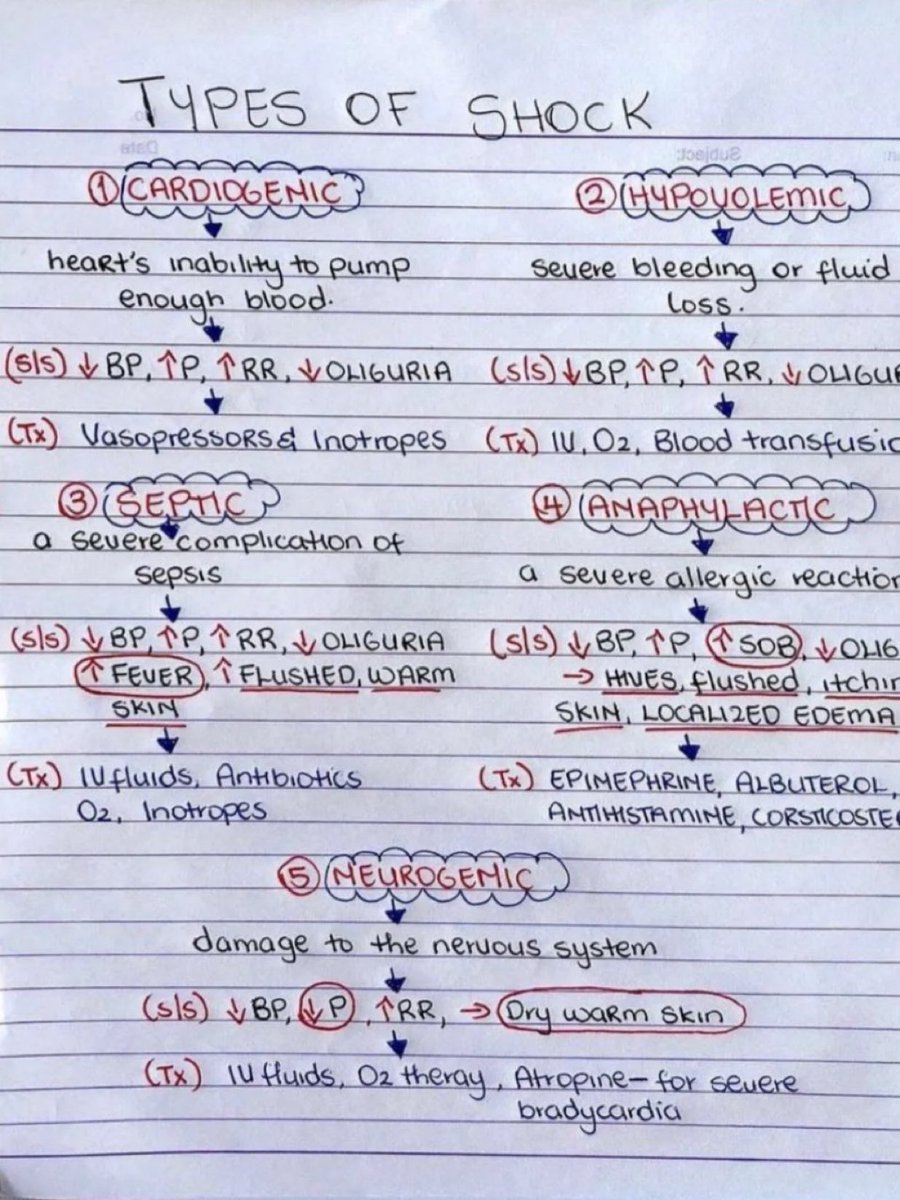 TYPES OF SHOCK
① CARDIOGENIC
heart's inability to pump
enough blood.
(S/S) ↓ BP, ↑ P, ↑ RR, ↓ OLIGURIA
(Tx) Vasopressors & Inotropes
② HYPOVOLEMIC
severe bleeding or fluid
loss.
(S/S) ↓ BP, ↑ P, ↑ RR, ↓ OLIGUR
(Tx) IV, O2, Blood transfusio
③ SEPTIC
a severe complication of
sepsis
(S/S) ↓ BP, ↑ P, ↑ RR, ↓ OLIGURIA
↑ FEVER, ↑ FLUSHED, WARM
SKIN
(Tx) IV fluids, Antibiotics
O2, Inotropes
④ ANAPHYLACTIC
a severe allergic reaction
(S/S) ↓ BP, ↑ P, ↑ SOB, ↓ OLIG
→ HIVES, flushed, itchin
SKIN, LOCALIZED EDEMA
(Tx) EPIMEPHRINE, ALBUTEROL,
ANTIHISTAMINE, CORSTICOSTE
⑤ NEUROGEMIC
damage to the nervous system
(S/S) ↓ BP, ↓ P, ↑ RR, → Dry warm skin
(Tx) IV fluids, O2 theray, Atropine – for severe
bradycardia
Subject:
Date